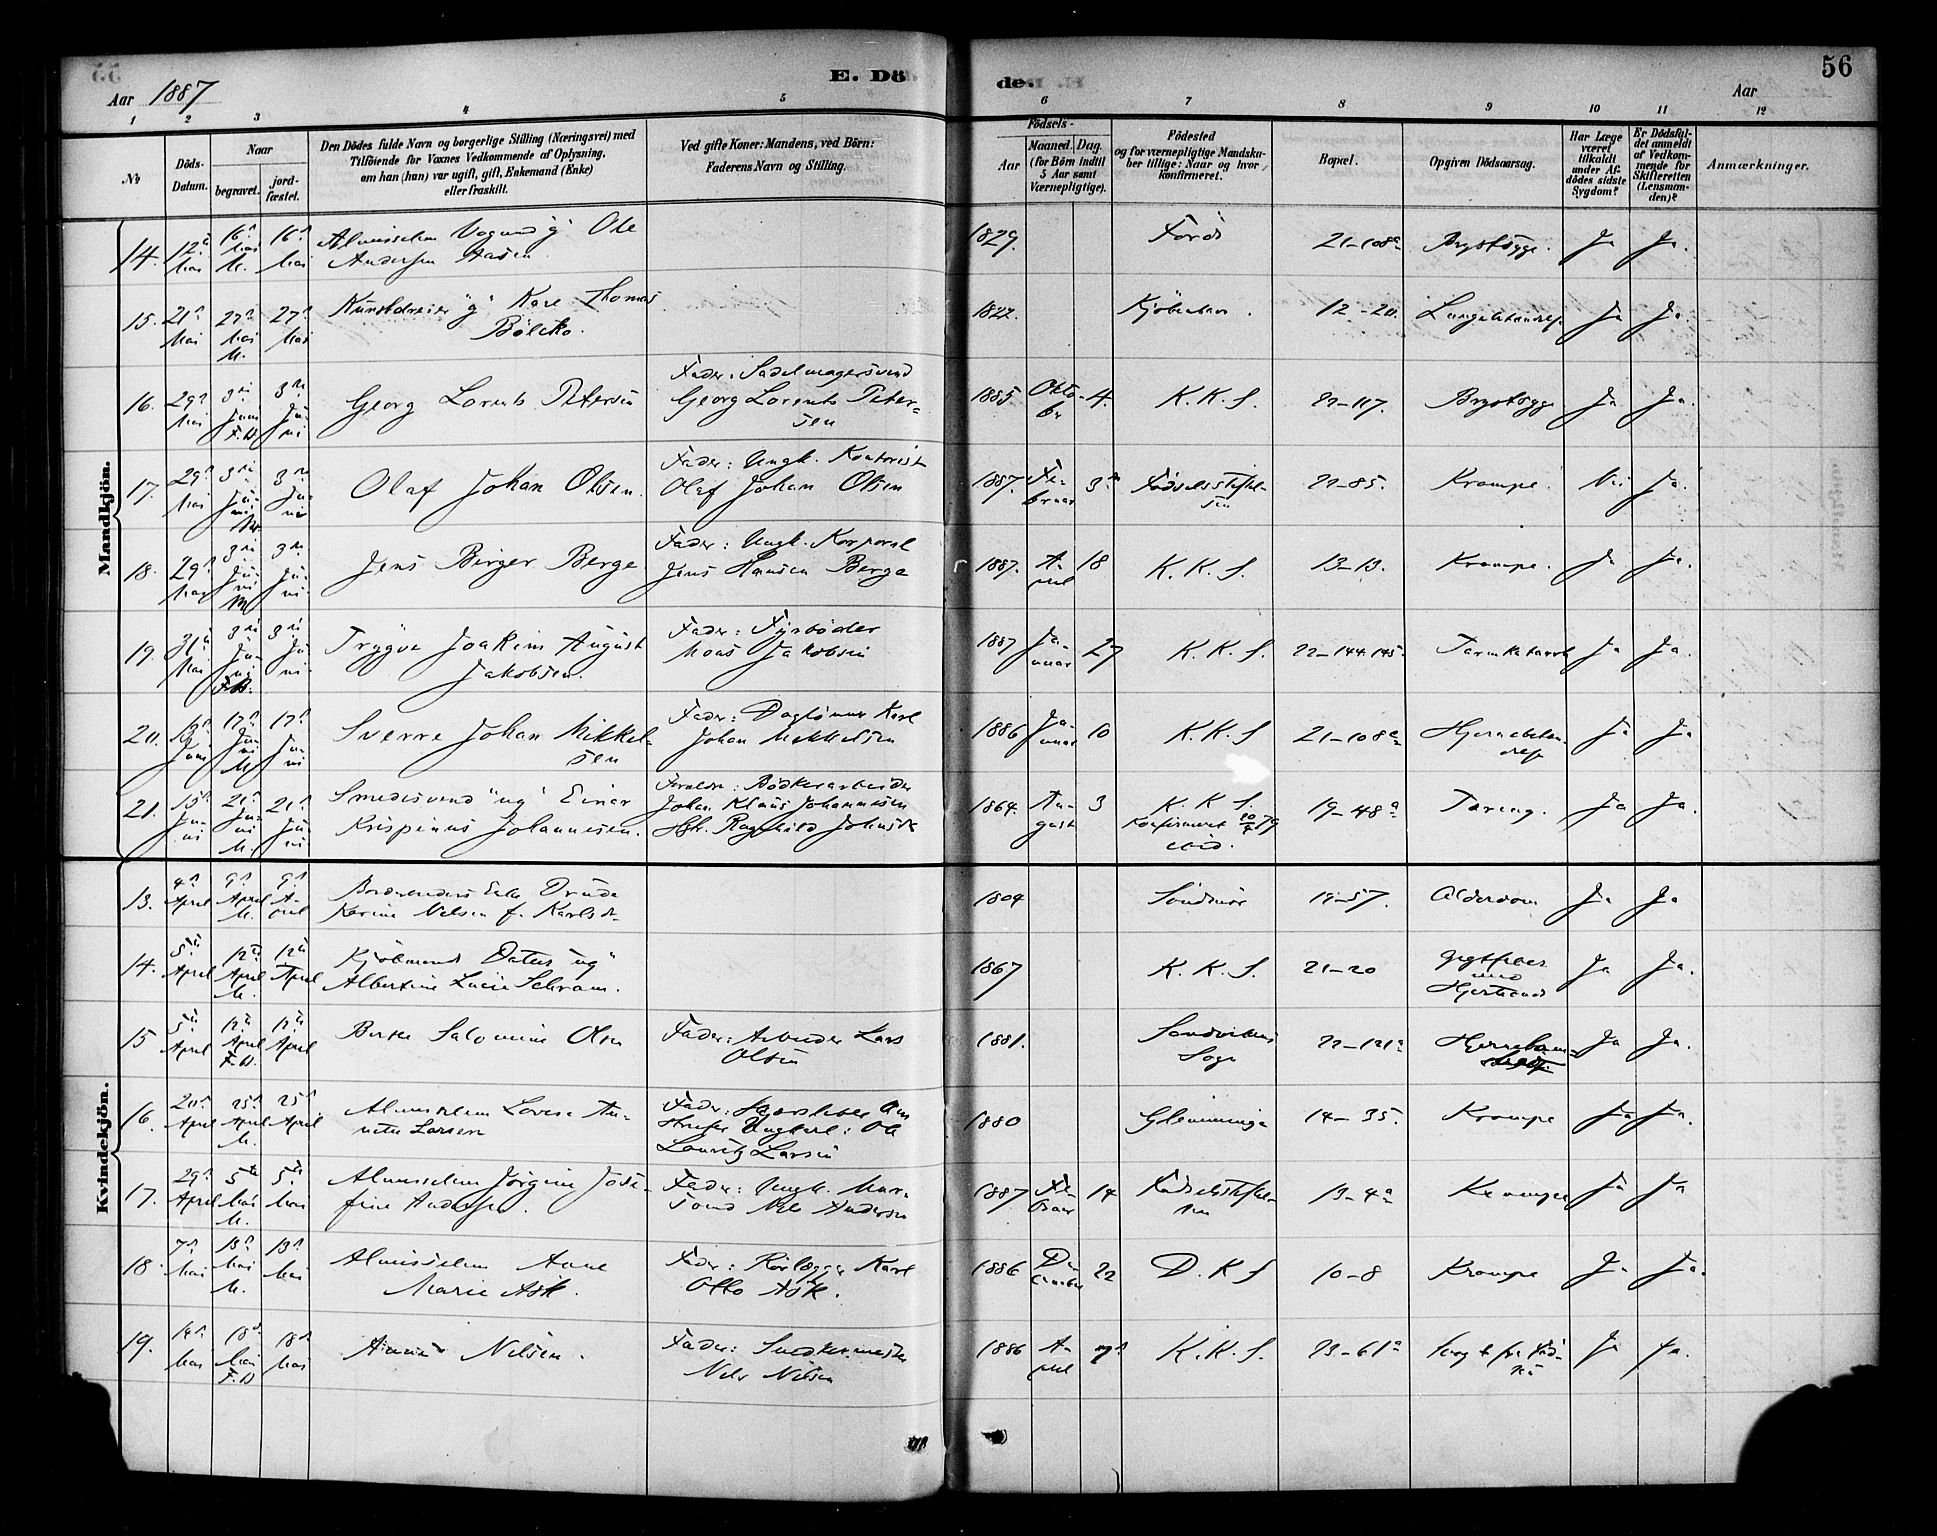 55
Aar 1887
E. Dö
de.
56
Aar
1 2 3 4 5 6 7 8 9 10 11 12
№
Döds-
Datum.
Naar
begravet.
jord-
fæstet.
Den Dödes fulde Navn og borgerlige Stilling (Næringsvei) med
Tilföiende for Voxnes Vedkommende af Oplysning,
om han (hun) var ugift, gift, Enkemand (Enke)
eller fraskilt.
Ved gifte Koner: Mandens, ved Börn:
Faderens Navn og Stilling.
Födsels-
Aar
Maaned. Dag.
(for Börn indtil
5 Aar samt
Værnepligtige).
Födested
og for værnepligtige Mandska-
ber tillige: Naar og hvor
konfirmeret.
Bopæl.
Opgiven Dödsaarsag.
Har Læge
været
tilkaldt
under Af-
dödes sidste
Sygdom?
Er Dödsfal-
det anmeldt
af Vedkom-
mende for
Skifteretten
(Lensman-
den)?
Anmærkninger.
Mandkjön.
14. 12 Mai 16 Mai M. 16 Mai
Almisselem "g" Ole
Andersen
1829. 21-108a Brystsyge. Ja Ja.
15. 21 Mai 27 Mai M. 27 Mai
Kunstdreier "g" Thomas
1822. Kjöbenhavn. 12-20 Ja Ja.
16. 29 Mai 3 Juni F.B. 3 Juni
Georg Lorents Petersen
Fader: Sadelmagersvend
Georg Lorents Peter-
sen
1885 Okto-
br 4. K. K. S. 22-117. Brystsyge Ja Ja.
17. 29 Mai 3 Juni M. 3 Juni
Olaf Johan Olsen.
Fader: Ungk. Kontorist
Olaf Johan Olsen
1887. Fe-
bruar 3 Födselsstiftel-
sen 22-85. Krampe. Nei Ja.
18. 29 Mai 3 Juni M. 3 Juni
Jens Birger Berge
Fader: Ungk. Korporal
Jens Hansen Berge
1887. A-
pril 18 K. K. S. 13-13. Krampe. Ja Ja.
19. 31 Mai 3 Juni F.B. 3 Juni
Trygve Joakim August
Jakobsen.
Fader: Fyrböder
Moas Jakobsen
1887 Ja-
nuar 27 K. K. S. 22-144.145. Tarmkatarrh Ja Ja.
20. Juni 17 Juni M. 17 Juni
Sverre Johan Mikkel-
sen
Fader: Daglönner Karl
Johan Mikkelsen
1886 Ja-
nuar 10 K. K. S 21-108a Ja Ja
21. 15 Juni 21 Juni M. 21 Juni
Smedesvend "ug" Einar
Krispinus Johannesen.
Forældre: Bödkerarbeider
Johan Klaus Johannesen
Hsh. Ragnhild
1864. Au-
gust 3 K. K. S.
Konfirmeret 79
ibid. 19-48a Tæring. Ja Ja.
Kvindekjön.
13. 4 April 9 April M. 9 April
Enke
Karine Nelsen f.
1804 Söndmör 19-57. Alderdom Ja Ja
14. 5 April 12 April M. 12 April
Kjöbmands Datter "ug"
Albertine Lucie Schram.
1867 K. K. S. 21-20 Gigtfeber
med
Ja Ja.
15 5 April 12 April F.B. 12 April
Salomine Olsen
Fader: Arbeider Lars
Olsen
1881. Sandvikens
Sogn 22-121a Ja Ja.
16. 20 April 25 April M. 25 April
Almisselem Lovise An-
nette Larsen
Fader:
Ungkarl: Ole
Lauritz Larsen
1880 Glemminge 14-35. Krampe Ja Ja.
17. 29 April 5 Mai M. 5 Mai
Almisselem Jörgine Jose-
fine Andersen.
Fader: Ungk. Mar-
Nils Andersen
1887 Fe-
bruar 14 Födselsstiftel-
sen 13-4a Krampe Ja Ja
18 7 Mai 13 Mai M. 13 Mai
Almisselem Anne
Marie Ask.
Fader: Rörlægger Karl
Otto Ask.
1886 De-
cember 22 D. K. S 10-8 Krampe Ja Ja.
19. 14 Mai 18 Mai F.B 18 Mai
Nilsen.
Fader: Snedkermester
Nils Nilsen
1886 A-
pril 7 K. K. S. 23-61a Ja Ja.